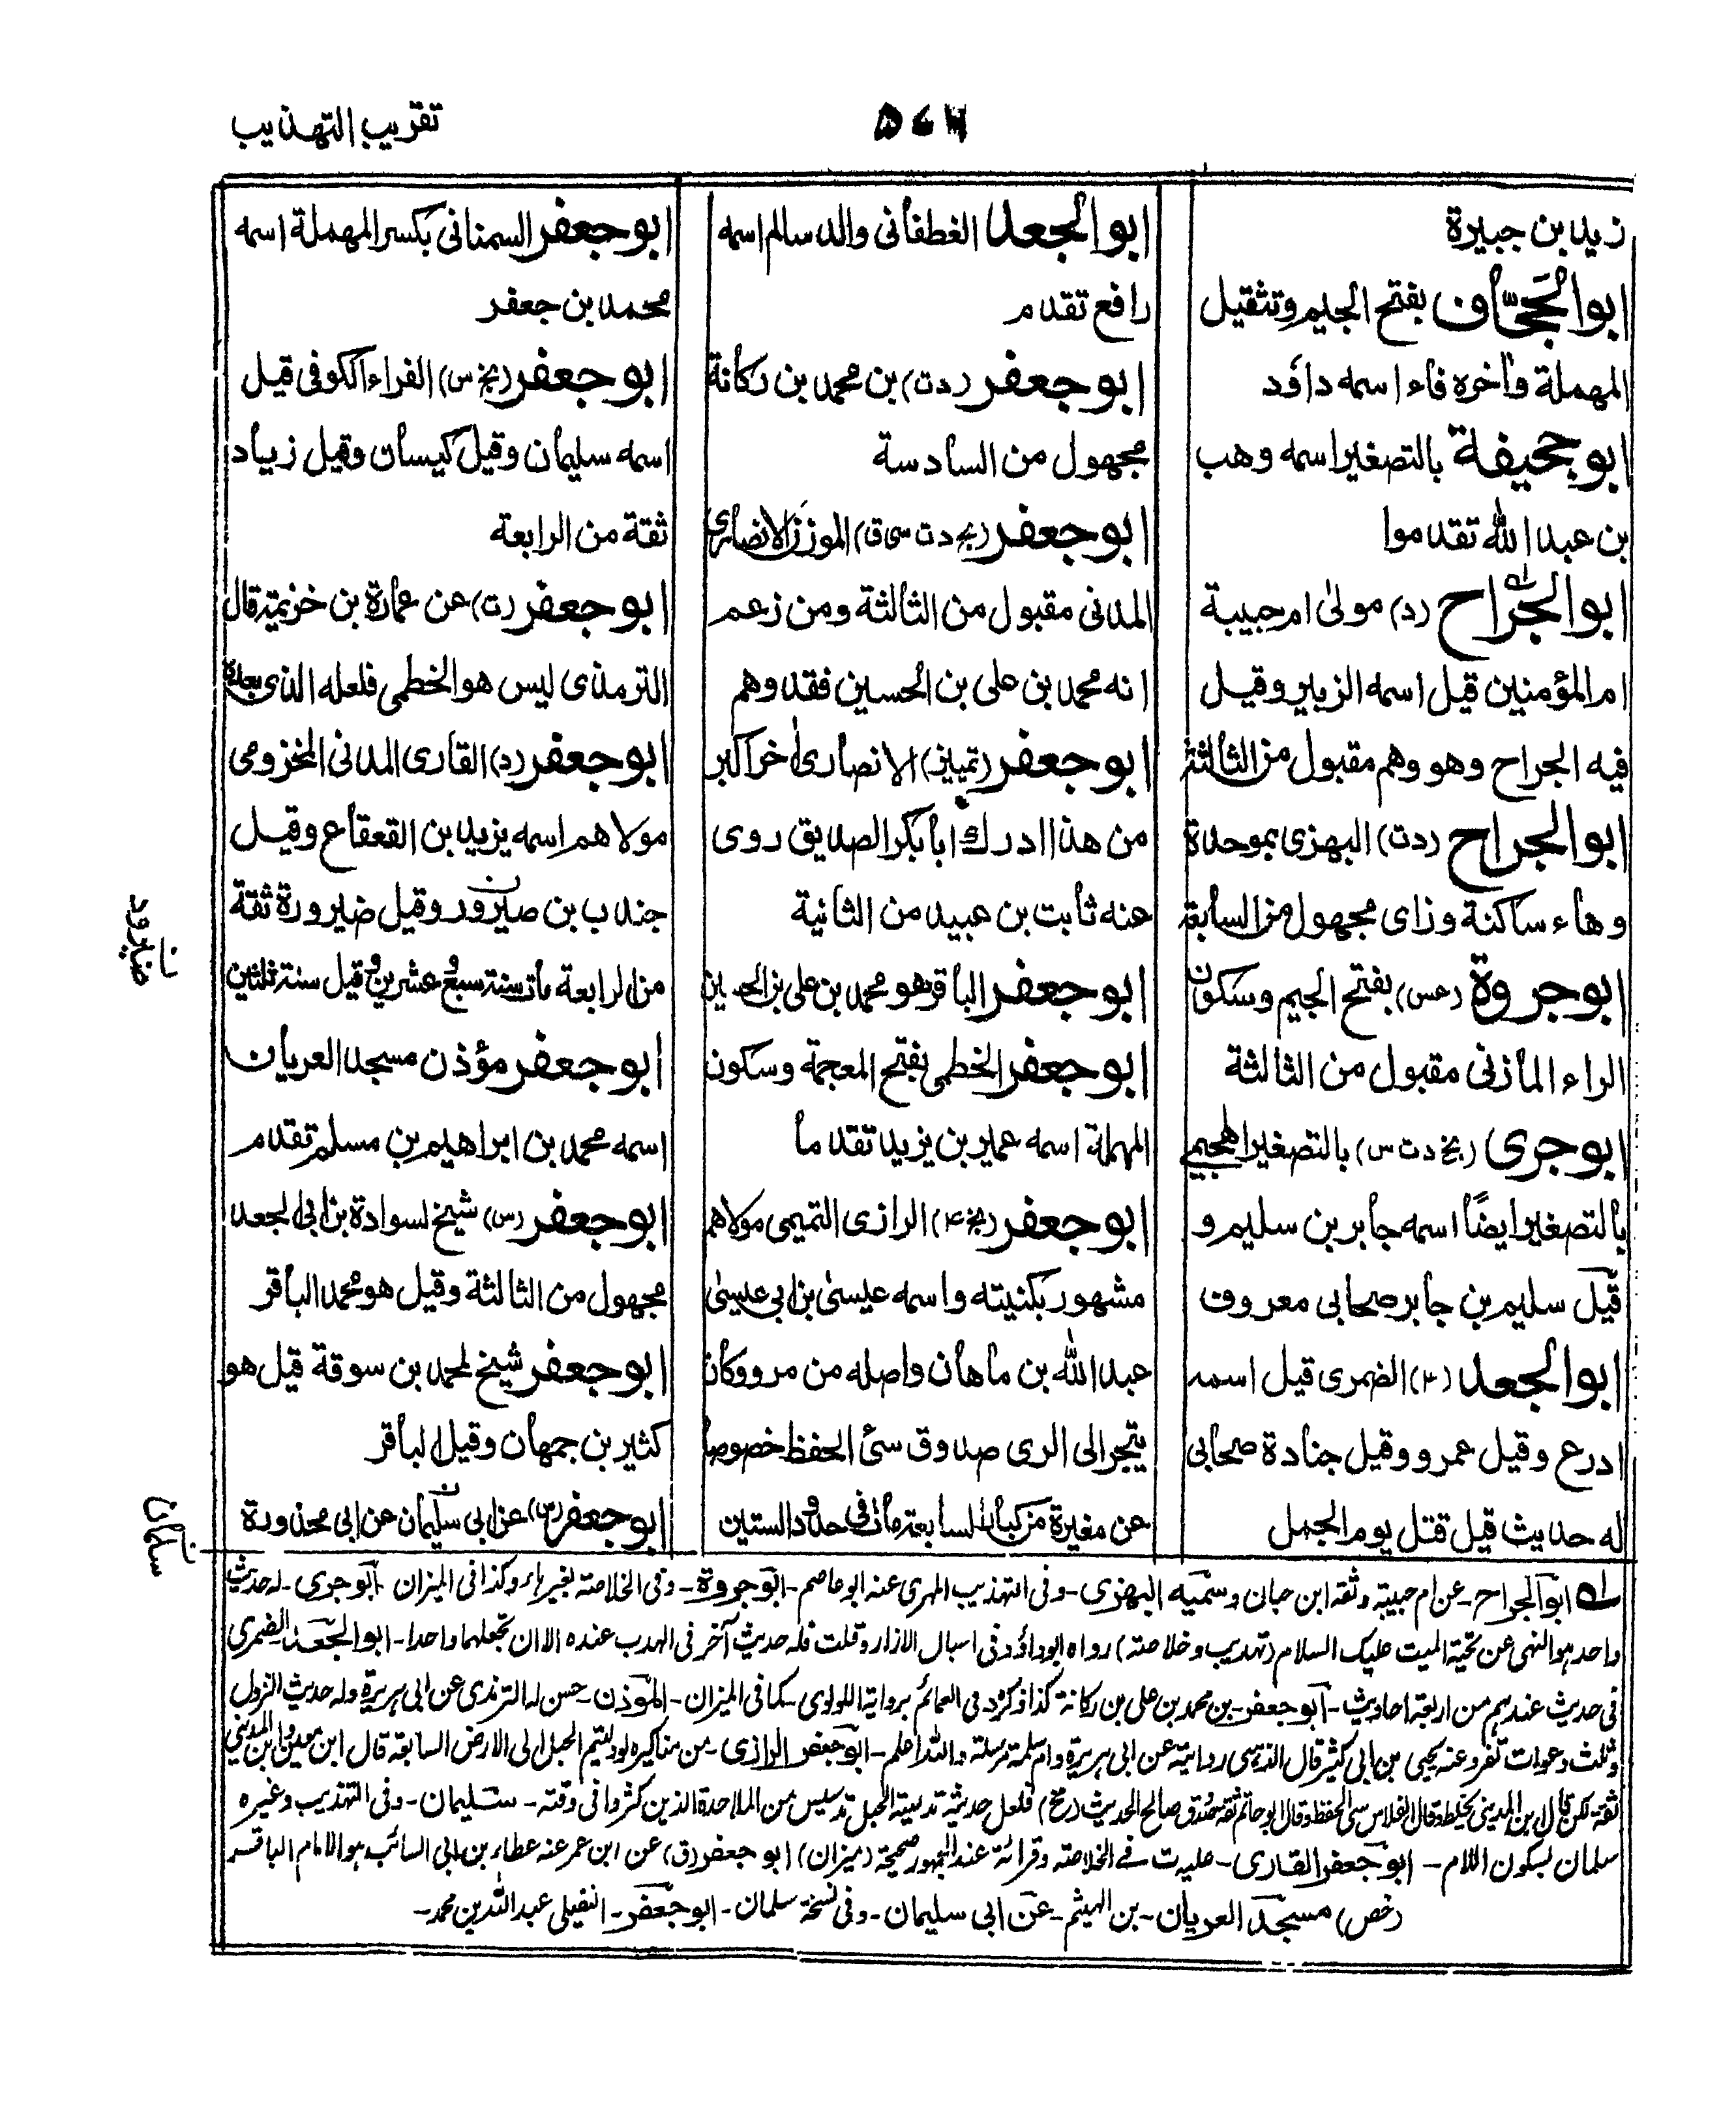 تقريب التهذيب
زيد بن جبيرة
ابو الجَحَّاف بفتح الجيم وتثقيل
المهملة واٰخره فاء اسمه داوٗد
ابو جحيفة بالتصغير اسمه وهب
بن عبد الله تقدموا
ابو الجرّاح (د) مولىٰ ام حبيبة
ام المؤمنين قيل اسمه الزبير وقيل
فيه الجراح وهو وهم مقبول من الثالثة
ابو الجراح (دت) البهزى بموحدة
وهاء ساكنة وزاى مجهول من السابعة
ابو جروة (عس) بفتح الجيم وسكون
الراء المازنى مقبول من الثالثة
ابو جرى (بخ دت س) بالتصغير الهجيمى
بالتصغير ايضًا اسمه جابر بن سليم و
قيل سليم بن جابر صحابى معروف
ابو الجعد (٤) الضمرى قيل اسمه
ادرع وقيل عمرو وقيل جنادة صحابى
له حديث قيل قتل يوم الجمل
ابو الجعد الغطفانى والد سالم اسمه
رافع تقدم
ابو جعفر (دت) بن محمد بن ركانة
مجهول من السادسة
ابو جعفر (بخ دت سى ق) الموذن الانصارى
المدنى مقبول من الثالثة ومن زعم
انه محمد بن على بن الحسين فقد وهم
ابو جعفر (تمييز) الانصارى اٰخر اكبر
من هذا ادرك ابا بكر الصديق روى
عنه ثابت بن عبيد من الثانية
ابو جعفر الباقر هو محمد بن على بن الحسين
ابو جعفر الخطمى بفتح المعجمة وسكون
المهملة اسمه عمير بن يزيد تقدما
ابو جعفر (بخ ٤) الرازى التميمى مولاهم
مشهور بكنيته واسمه عيسىٰ بن ابى عيسىٰ
عبد الله بن ماهان واصله من مرو وكان
يتجر الى الرى صدوق سئ الحفظ خصوصا
عن مغيرة من كبار السابعة مات فى حدود الستين
ابو جعفر السمنانى بكسر المهملة اسمه
محمد بن جعفر
ابو جعفر (بخ س) الفراء الكوفى قيل
اسمه سليمان وقيل كيسان وقيل زياد
ثقة من الرابعة
ابو جعفر (ت) عن عمارة بن خزيمة قال
الترمذى ليس هو الخطمى فلعله الذى بعده
ابو جعفر (د) القارى المدنى المخزومى
مولاهم اسمه يزيد بن القعقاع وقيل
جندب بن وقيل ثقة
من الرابعة مات سنة سبع وعشرين وقيل سنة ثلثين
ابو جعفر مؤذن مسجد العريان
اسمه محمد بن ابراهيم بن مسلم تقدم
ابو جعفر (س) شيخ لسوادة بن ابى الجعد
مجهول من الثالثة وقيل هو محمد الباقر
ابو جعفر شيخ لمحمد بن سوقة قيل هو
كثير بن جمهان وقيل الباقر
ابو جعفر (س) عن ابى سليمان عن ابى محذورة
سلمان
ابو الجراح - عن ام حبيبة وثقه ابن حبان وسميه البهزى - وفى التهذيب المهرى عنه ابو عاصم - ابو جروة - وفى الخلاصة بغير هاء وكذا فى الميزان ابو جرى - له حديث
واحد هو النهى عن تحية الميت عليك السلام (تهذيب وخلاصة) رواه ابو داؤد فى اسبال الازار وقلت فله حديث آخر فى الهدب عنده الا ان تجعلهما واحدا - ابو الجعد الضمرى
فى حديث عندهم من اربعة احاديث - ابو جعفر - بن محمد بن على بن ركانة كذا ذكره د فى العمائم برواية اللولوى كما فى الميزان - الموذن - حسن له الترمذى عن ابى هريرة وله حديث النزول
وثلث دعوات تفرد عنه يحيى بن ابى كثير قال الذهبى روايته عن ابى هريرة وام سلمة مرسلة والله اعلم - ابو جعفر الرازى - من مناكيره لو دليتم الحبل الى الارض السابعة قال ابن معين وابن المدينى
ثقة لكن قال ابن المدينى يخلط وقال الفلاس سئ الحفظ وقال ابو حاتم ثقة صدوق صالح الحديث فلعل حديثه تدلية الحبل تدسيس من الملاحدة الذين كثروا فى وقته - سليمان - وفى التهذيب وغيره
سلمان بسكون اللام - ابو جعفر القارى - عليه ت فى الخلاصة وقرائة عند الجمهور صحيحة (ميزان) ابو جعفر (ق) عن ابن عمر عنه عطاء بن ابى السائب هو الامام الباقر
(خص) مسجد العريان - بن الهيثم - عن ابى سليمان - وفى نسخة سلمان - ابو جعفر - النفيلى عبد الله بن محمد -